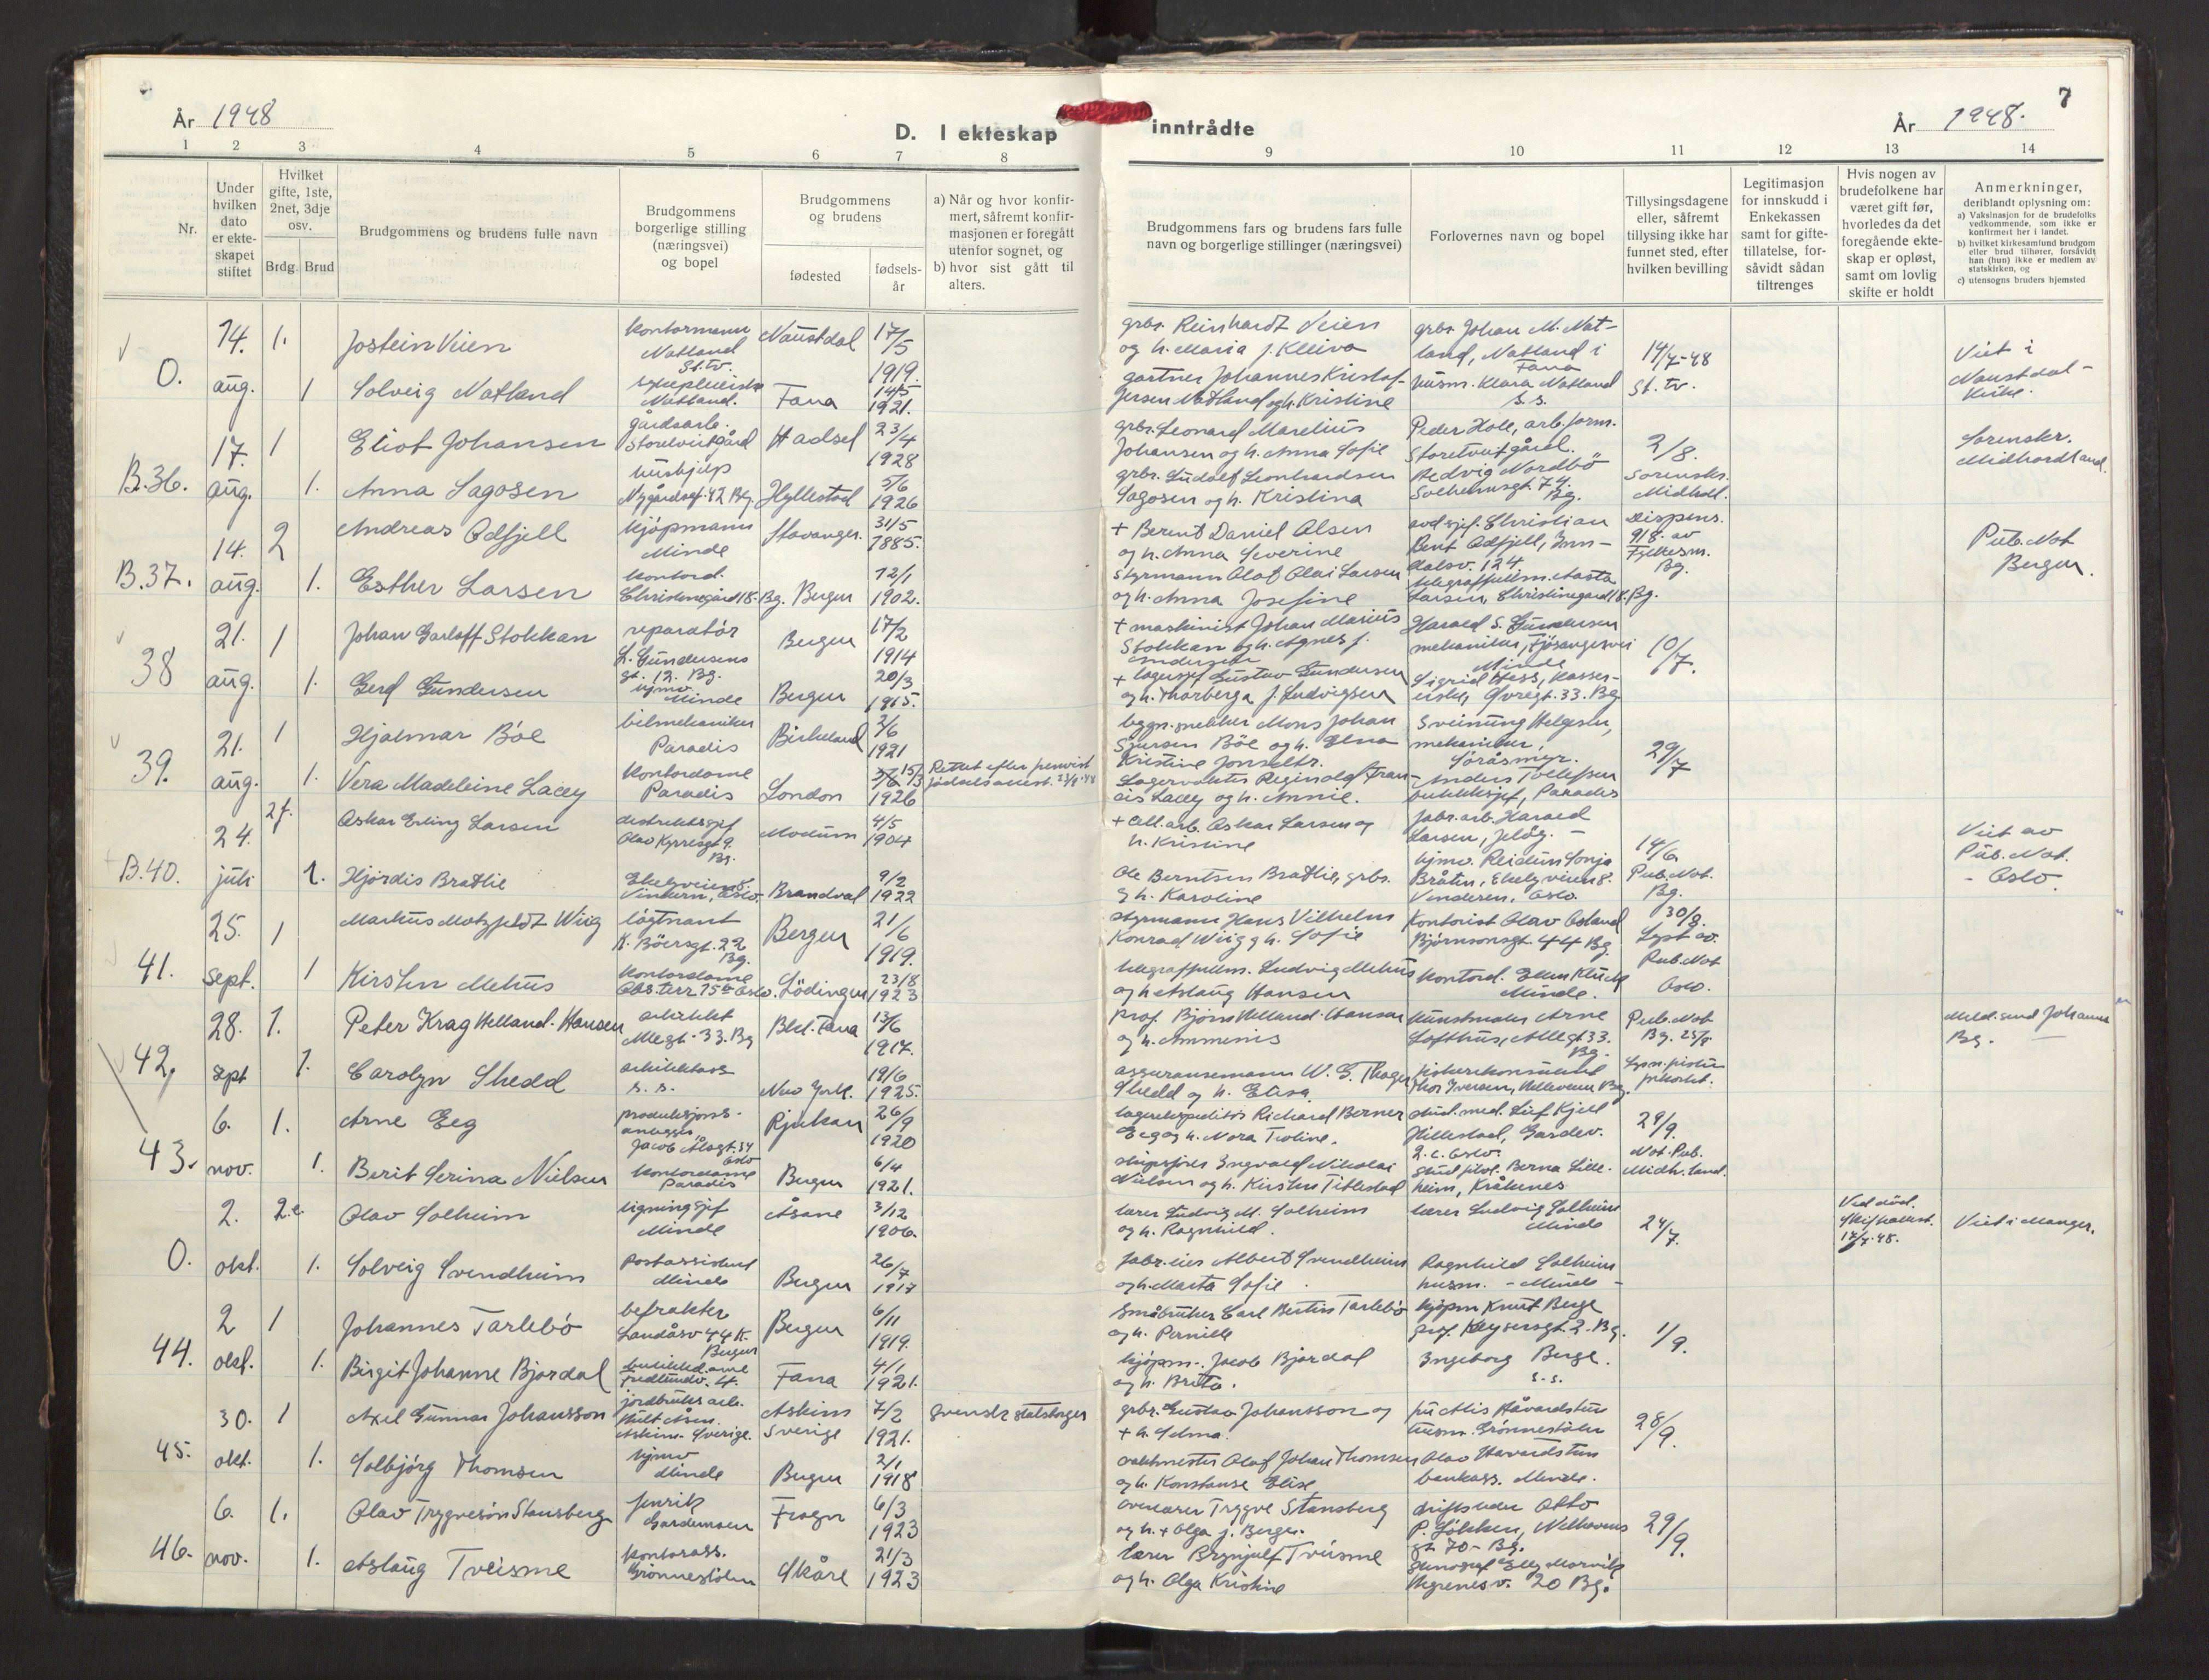 År 1948
D. I ekteskap
inntrådte
År 1948.
7
1 2 3 4 5 6 7 8
9 10 11 12 13 14
Nr.
Under hvilken dato er ekte-skapet stiftet
Hvilket gifte, 1ste, 2net, 3dje osv.
Brdg. Brud
Brudgommens og brudens fulle navn
Brudgommens borgerlige stilling (næringsvei) og bopel
Brudgommens og brudens
fødested
fødsels-år
a) Når og hvor konfir-mert, såfremt konfir-masjonen er foregått utenfor sognet, og
b) hvor sist gått til alters.
Brudgommens fars og brudens fars fulle navn og borgerlige stillinger (næringsvei)
Forlovernes navn og bopel
Tillysingsdagene eller, såfremt tillysing ikke har funnet sted, efter hvilken bevilling
Legitimasjon for innskudd i Enkekassen samt for gifte-tillatelse, for-såvidt sådan tiltrenges
Hvis nogen av brudefolkene har været gift før, hvorledes da det foregående ekte-skap er opløst, samt om lovlig skifte er holdt
Anmerkninger, deriblandt oplysning om:
a) Vaksinasjon for de brudefolks vedkommende, som ikke er konfirmert her i landet.
b) hvilket kirkesamfund brudgom eller brud tilhører, forsåvidt han (hun) ikke er medlem av statskirken, og
c) utensogns bruders hjemsted
0. 14. aug. 1. Jostein Veien kontormann Natland St.tv. Naustdal 17/5 1919.
grbr. Reinhardt Veien og h. Maria f. Kleiva
grbr. Johan M. Natland, Natland i Fana
14/7-48 St. tv.
Viet i Naustdal - Kirke.
1 Solveig Natland Natland. Fana 14/5 1921.
gartner Johannes Kristoffersen Natland og h. Kristine
husm. Klara Natland s.s.
B.36. 17. aug. 1 Eliot Johansen gårdsarb. Storetveitgård Hadsel 23/4 1928
grbr. Leonard Marelius Johansen og h. Anna Sofie
Peder Hole, arb.form. Storetveitgård.
2/8. Sorenskr. Midhdl.
Sorenskr. Midhordland.
1. Anna Sagosen hushjelp Nygårdsgt. 42 Bg. Hyllestad 5/6 1926
grbr. Ludolf Leonhardsen Sagosen og h. Kristina
Hedvig Nordbö Solheimsgt. 74. Bg.
B.37. 14. aug. 2 Andreas Odfjell kjöpmann Minde Stavanger. 31/5 1885.
+ Berent Daniel Olsen og h. Anna Severine
avd.sjef. Christian Bent Odfjell, Inndalsv. 124
Dispens. 9/8. av Fylkesm. Bg.
Pub. Not Bergen.
1. Esther Larsen kontord. Christinegård 18. Bg. Bergen 12/1 1902.
Styrmann Olaf Olai Larsen og h. Anna Josefine
telegraffullm. Aasta Larsen, Christinegård 18. Bg.
38 21. aug. 1 Johan Garloff Stokkan reparatör L. Gundersens gt. 12. Bg. Bergen 17/2 1914
+ maskinist Johan Marius Stokkan og h. Agnes f. Andersen
Harald S. Gundersen mekaniker, Fjösangervei Minde
10/7.
1. Gerd Gundersen hjmv. Minde Bergen 20/3 1915.
+ lagersjef Gustav Gundersen og h. Thorberga f. Ludvigsen
Sigrid Hess, kassererske, Øvregt. 33. Bg
39. 21. aug. 1 Hjalmar Böe bilmekaniker Paradis Birkeland 2/6 1921
bygn.snekker Mons Johan Sjursen Böe og h. Elna Kristine Jonsdtr.
Sveinung Helgesen, mekaniker, Söråsmyr.
29/7
1. Vera Madeleine Lacey Kontordame Paradis London 15/3 1926
Rettet efter fremvist fødselsattest. 23/9-48
Lagervakter Reginald Francis Lacey og h. Annie.
Anders Tollefsen butikksjef, Paradis
B.40. 24. juli 2f. Oskar Erling Larsen distriktssjef Olav Kyrresgt 9. Bg. Modum 4/5 1904
+ cell.arb. Oskar Larsen og h. Kristine
fabr.arb. Harald Larsen, Jelöy. -
14/6. Pub. Not. Bg.
Viet av Pub. Not. - Oslo.
1. Hjördis Bratlie Ekelyveien 8. Vinderen, Oslo. Brandval 9/2 1922
Ole Berntsen Bratlie, grbr. og h. Karoline
hjmv. Reidun Sonja Bråten, Ekelyveien 8. Vinderen, Oslo.
41. 25. sept. 1 Markus Motzfeldt Wiig löytnant K. Böersgt. 22 Bg. Bergen 21/6 1919.
styrmann Hans Vilhelm Konrad Wiig og h. Sofie
Kontorist Olav Osland Björnsonsgt. 44 Bg.
30/8. Lyst av. Pub. Not Oslo.
1 Kirsten Mehus kontordame Obs.terr. 15 Oslo. Lödingen 23/8 1923
telegraffullm. Ludvig Mehus og h. Aslaug Hansen
kontord. Ellen Minde.
42. 28. sept 1. Peter Krag Helland-Hansen arkitekt Allegt. 33. Bg Bkl. Fana 13/6 1917.
prof. Björn Helland-Hansen og h. Amminis
kunstmaler Arne Lofthus, Allegt 33. Bg.
Pub. Not Bg. 25/8
Bg. -
1. Carolyn Shedd arkitekt s.s. New York. 19/6 1925.
assuransemann W. G. Thager Shedd og h. Elisa.
fiskerikonsulent Thor Iversen, Bg.
43. 6. nov. 1. Arne Eeg produksjons- Jacob Aalsgt. 34 Oslo Rjukan 26/9 1920
lagerekspeditör Richard Berner Eeg og h. Nora Troline.
stud. med. Leif Kjell Hillestad, Gardev. 2.c. Oslo.
29/9. Not. Pub. Midh. land.
1. Berit Serina Nielsen kontordame Paradis Bergen 6/4 1921.
skipsförer Ingvald Nikolai Nielsen og h. Kirsten Titlestad
stud. filol. Berna Lilleheim, Kråkenes
0. 2. okt. 2.e. Olav Solheim ligningssjef Minde Åsane 3/12 1906.
lærer Ludvig M. Solheim og h. Ragnhild.
lærer Ludvig Solheim Minde
24/7.
Ved död. 17/7.48.
Viet i Manger.
1. Solveig Svendheim Postassistent Minde Bergen 26/7 1917
fabr.eier Albert Svendheim og h. Marta Sofie.
Ragnhild Solheim husm. - Minde -
44. 2 okt. 1 Johannes Tarlebö befrakter Landåsv 44 K. Bergen Bergen 6/11 1919.
Småbruker Carl Bertin Tarlebö og h. Pernille
kjöpm Knut Berge prof. Keysersgt. 2. Bg.
1/9.
1. Birgit Johanne Bjordal butikkdame Fredlundv. 4. Fana 4/1 1921.
kjöpm. Jacob Bjordal og h. Brita.
Ingeborg Berge. s.s.
45. 30. okt. 1 Axel Gunnar Johansson jordbruks arb. Hult Åsen. Askim - Sverige. Askim Sverige 7/2 1921.
Svensk statsborger
grbr. Gustav Johansson og + h. Selma.
fru Alis Håvardstun husm. Grönnestölen
28/9.
1. Solbjörg Thomsen hjmv Minde Bergen 2/1 1918
vaktmester Olaf Johan Thomsen og h. Konstanse Elise.
Olav Havardstun bankass. Minde.
46. 6. nov. 1. Olav Tryggvesön Stansberg fenrik Gardermoen Frogn 6/3 1923
overlærer Trygve Stansberg og h. + Olga f. Berger.
driftsleder Otto P. Lökken, Welhavens gt 70 - Bg.
29/9.
1. Aslaug Tveisme kontorass. Grönnestölen Skåre 21/3 1923
lærer Brynjulf Tveisme og h. Olga Kristine
stenograf Elly Morvik Hegrenesv. 20 Bg.